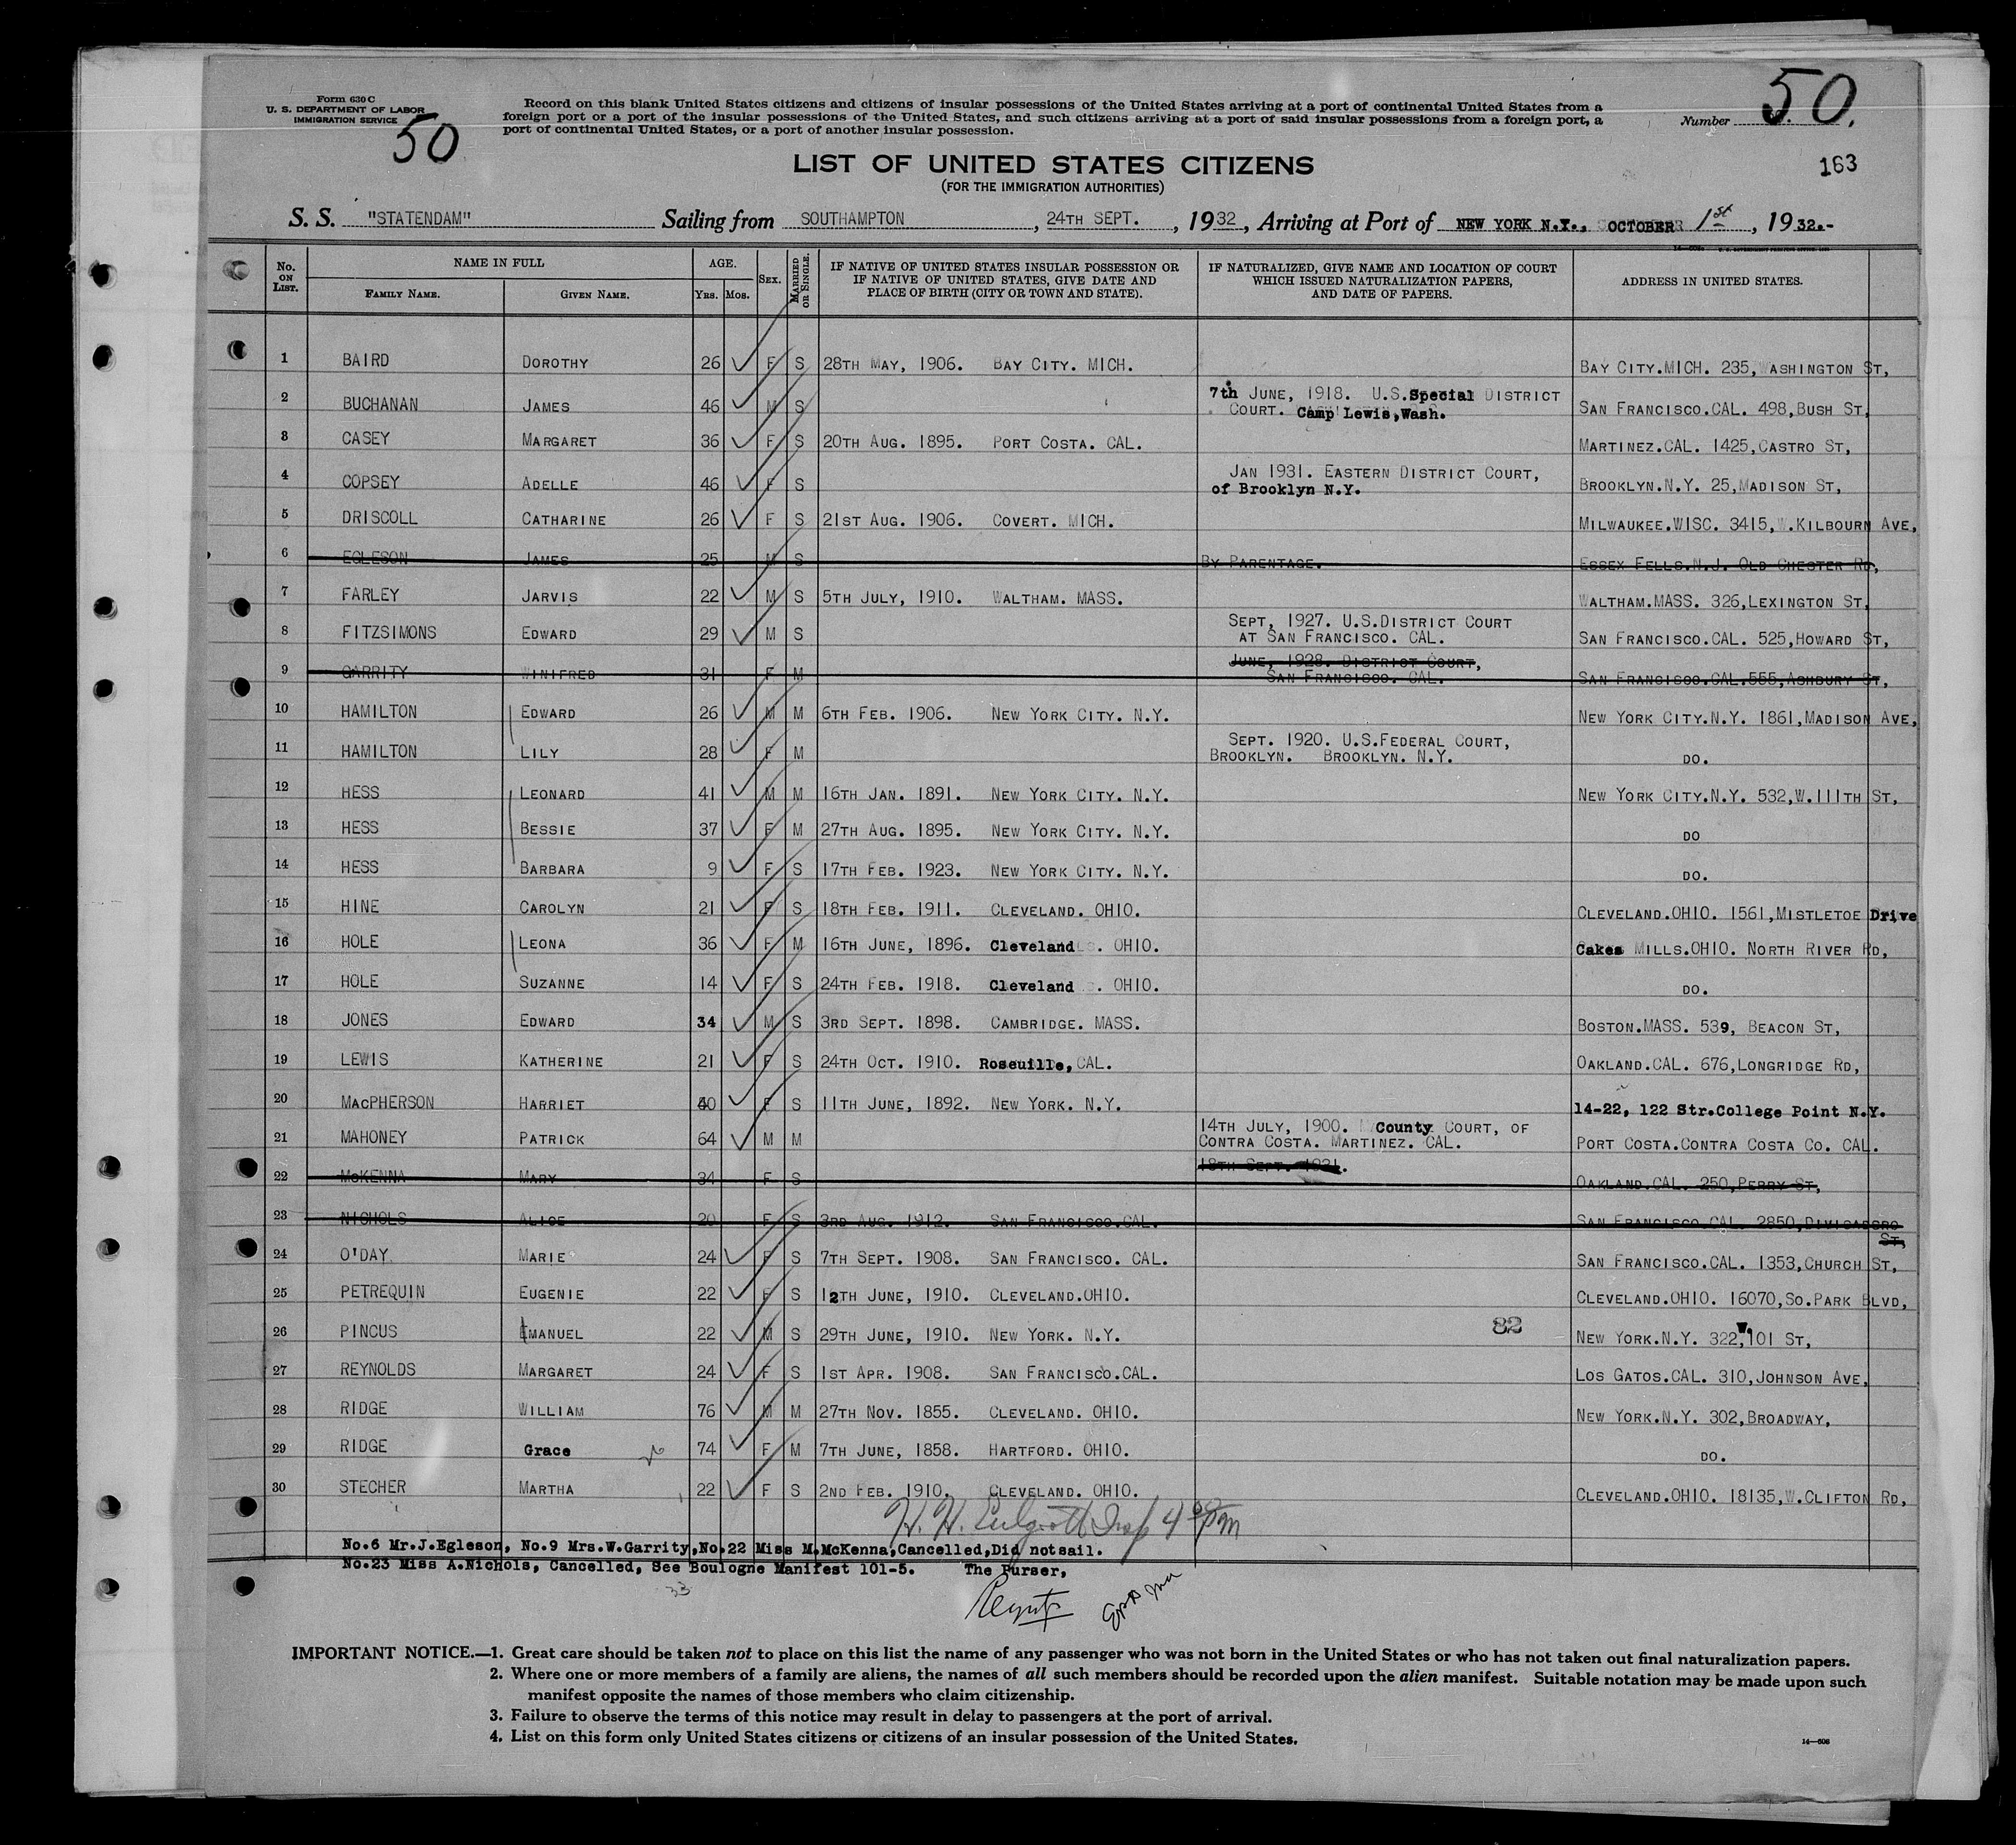 Form 630 C
U. S. DEPARTMENT OF LABOR
IMMIGRATION SERVICE
50
Record on this blank United States citizens and citizens of insular possessions of the United States arriving at a port of continental United States from a
foreign port or a port of the insular possessions of the United States, and such citizens arriving at a port of said insular possessions from a foreign port, a
port of continental United States, or a port of another insular possession.
Number 50.
163
LIST OF UNITED STATES CITIZENS
(FOR THE IMMIGRATION AUTHORITIES)
S. S. "STATENDAM" Sailing from SOUTHAMPTON, 24TH SEPT., 1932, Arriving at Port of NEW YORK N.Y., OCTOBER 1st, 1932.-
No. ON LIST. NAME IN FULL FAMILY NAME. GIVEN NAME. AGE. YRS. MOS. SEX. MARRIED OR SINGLE. IF NATIVE OF UNITED STATES INSULAR POSSESSION OR IF NATIVE OF UNITED STATES, GIVE DATE AND PLACE OF BIRTH (CITY OR TOWN AND STATE). IF NATURALIZED, GIVE NAME AND LOCATION OF COURT WHICH ISSUED NATURALIZATION PAPERS, AND DATE OF PAPERS. ADDRESS IN UNITED STATES.
1 BAIRD DOROTHY 26 F S 28TH MAY, 1906. BAY CITY. MICH. BAY CITY.MICH. 235,WASHINGTON ST,
2 BUCHANAN JAMES 46 M S 7th JUNE, 1918. U.S.Special DISTRICT COURT. Camp Lewis,Wash. SAN FRANCISCO.CAL. 498,BUSH ST,
3 CASEY MARGARET 36 F S 20TH AUG. 1895. PORT COSTA. CAL. MARTINEZ.CAL. 1425,CASTRO ST,
4 COPSEY ADELLE 46 F S JAN 1931. EASTERN DISTRICT COURT, of Brooklyn N.Y. BROOKLYN.N.Y. 25,MADISON ST,
5 DRISCOLL CATHARINE 26 F S 21ST AUG. 1906. COVERT. MICH. MILWAUKEE.WISC. 3415,W.KILBOURN AVE,
6 EGLESON JAMES 25 M S BY PARENTAGE. ESSEX FELLS.N.J. OLD CHESTER RD,
7 FARLEY JARVIS 22 M S 5TH JULY, 1910. WALTHAM. MASS. WALTHAM.MASS. 326,LEXINGTON ST,
8 FITZSIMONS EDWARD 29 M S SEPT, 1927. U.S.DISTRICT COURT AT SAN FRANCISCO. CAL. SAN FRANCISCO.CAL. 525,HOWARD ST,
9 GARRITY WINIFRED 31 F M JUNE, 1928. DISTRICT COURT, SAN FRANCISCO. CAL. SAN FRANCISCO.CAL.555,ASHBURY ST,
10 HAMILTON EDWARD 26 M M 6TH FEB. 1906. NEW YORK CITY. N.Y. NEW YORK CITY.N.Y. 1861,MADISON AVE,
11 HAMILTON LILY 28 F M SEPT. 1920. U.S.FEDERAL COURT, BROOKLYN. BROOKLYN. N.Y. DO.
12 HESS LEONARD 41 M M 16TH JAN. 1891. NEW YORK CITY. N.Y. NEW YORK CITY.N.Y. 532,W.111TH ST,
13 HESS BESSIE 37 F M 27TH AUG. 1895. NEW YORK CITY. N.Y. DO
14 HESS BARBARA 9 F S 17TH FEB. 1923. NEW YORK CITY. N.Y. DO.
15 HINE CAROLYN 21 F S 18TH FEB. 1911. CLEVELAND. OHIO. CLEVELAND.OHIO. 1561,MISTLETOE Drive
16 HOLE LEONA 36 F M 16TH JUNE, 1896. Cleveland. OHIO. Cakes MILLS.OHIO. NORTH RIVER RD,
17 HOLE SUZANNE 14 F S 24TH FEB. 1918. Cleveland. OHIO. DO.
18 JONES EDWARD 34 M S 3RD SEPT. 1898. CAMBRIDGE. MASS. BOSTON.MASS. 539, BEACON ST,
19 LEWIS KATHERINE 21 F S 24TH OCT. 1910. Roseuille, CAL. OAKLAND.CAL. 676,LONGRIDGE RD,
20 MACPHERSON HARRIET 40 F S 11TH JUNE, 1892. NEW YORK. N.Y. 14-22, 122 Str.College Point N.Y.
21 MAHONEY PATRICK 64 M M 14TH JULY, 1900. County COURT, OF CONTRA COSTA. MARTINEZ. CAL. PORT COSTA.CONTRA COSTA CO. CAL.
22 MCKENNA MARY 34 F S 18TH SEPT. 1931. OAKLAND.CAL. 250,PERRY ST,
23 NICHOLS ALICE 20 F S 3RD AUG. 1912. SAN FRANCISCO.CAL. SAN FRANCISCO.CAL. 2850,DIVISADERO ST,
24 O'DAY MARIE 24 F S 7TH SEPT. 1908. SAN FRANCISCO. CAL. SAN FRANCISCO.CAL. 1353,CHURCH ST,
25 PETREQUIN EUGENIE 22 F S 12TH JUNE, 1910. CLEVELAND.OHIO. CLEVELAND.OHIO. 16070,SO.PARK BLVD,
26 PINCUS EMANUEL 22 M S 29TH JUNE, 1910. NEW YORK. N.Y. 82 NEW YORK.N.Y. 322,W.101 ST,
27 REYNOLDS MARGARET 24 F S 1ST APR. 1908. SAN FRANCISCO.CAL. LOS GATOS.CAL. 310,JOHNSON AVE,
28 RIDGE WILLIAM 76 M M 27TH NOV. 1855. CLEVELAND. OHIO. NEW YORK.N.Y. 302,BROADWAY,
29 RIDGE Grace 74 F M 7TH JUNE, 1858. HARTFORD. OHIO. DO.
30 STECHER MARTHA 22 F S 2ND FEB. 1910. CLEVELAND. OHIO. CLEVELAND.OHIO. 18135,W.CLIFTON RD,
No.6 Mr.J.Egleson, No.9 Mrs.W.Garrity,No.22 Miss M.McKenna,Cancelled,Did notsail.
No.23 Miss A.Nichols, Cancelled, See Boulogne Manifest 101-5. The Purser,
33
IMPORTANT NOTICE.—1. Great care should be taken not to place on this list the name of any passenger who was not born in the United States or who has not taken out final naturalization papers.
2. Where one or more members of a family are aliens, the names of all such members should be recorded upon the alien manifest. Suitable notation may be made upon such
manifest opposite the names of those members who claim citizenship.
3. Failure to observe the terms of this notice may result in delay to passengers at the port of arrival.
4. List on this form only United States citizens or citizens of an insular possession of the United States.
14—606